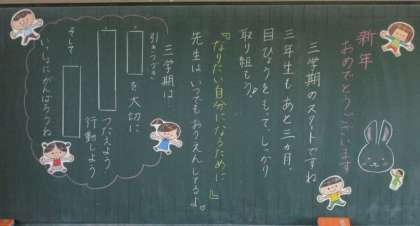 新年
あめでとうございます
三学期のスタートですね
三年生も、あと三カ月、
目ひょうをもって、しっかり
取り組もう。
『なりたい自分になるために』
先生はいつでもおうえんしてるよ。
三学期は
引きつづき
を大切に
つたえよう
行動しよう
そして
いっしょにがんばろうね